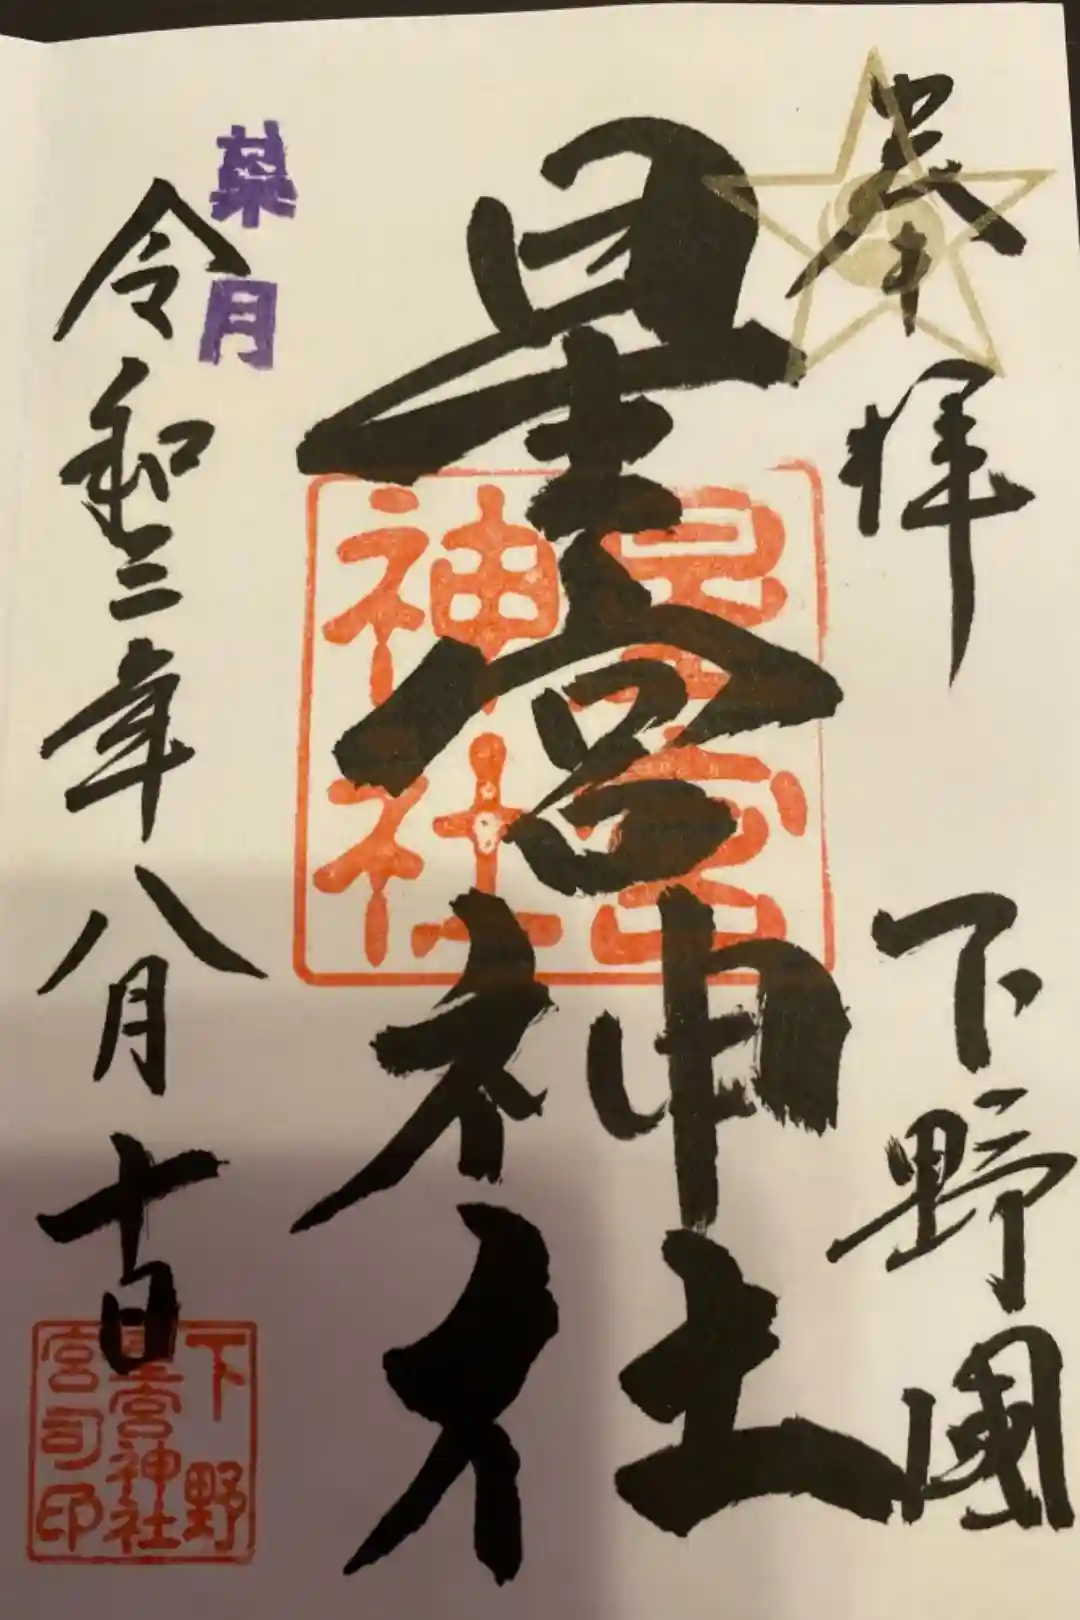 奉拝
下野國
星宮神社
星宮
神社
葉月
令和三年八月十日
下野
星宮神社
宮司印